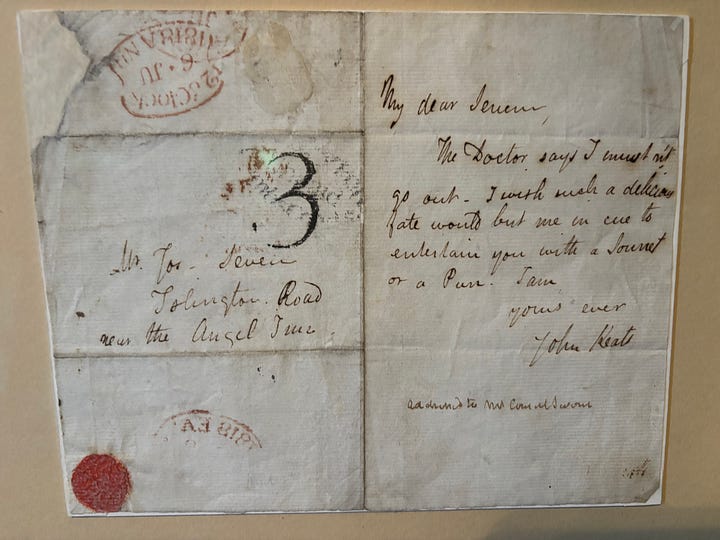 12 o'Clock
JU • 6
1818 NN
3
Mr. Jos - Severn
Islington Road
near the Angel Inn.
818
My dear Severn,
The Doctor says I must n't
go out - I wish such a delicious
fate would put me in cue to
entertain you with a Sonnet
or a Pun. I am
yours ever
John Keats
addressed to Mr Severn